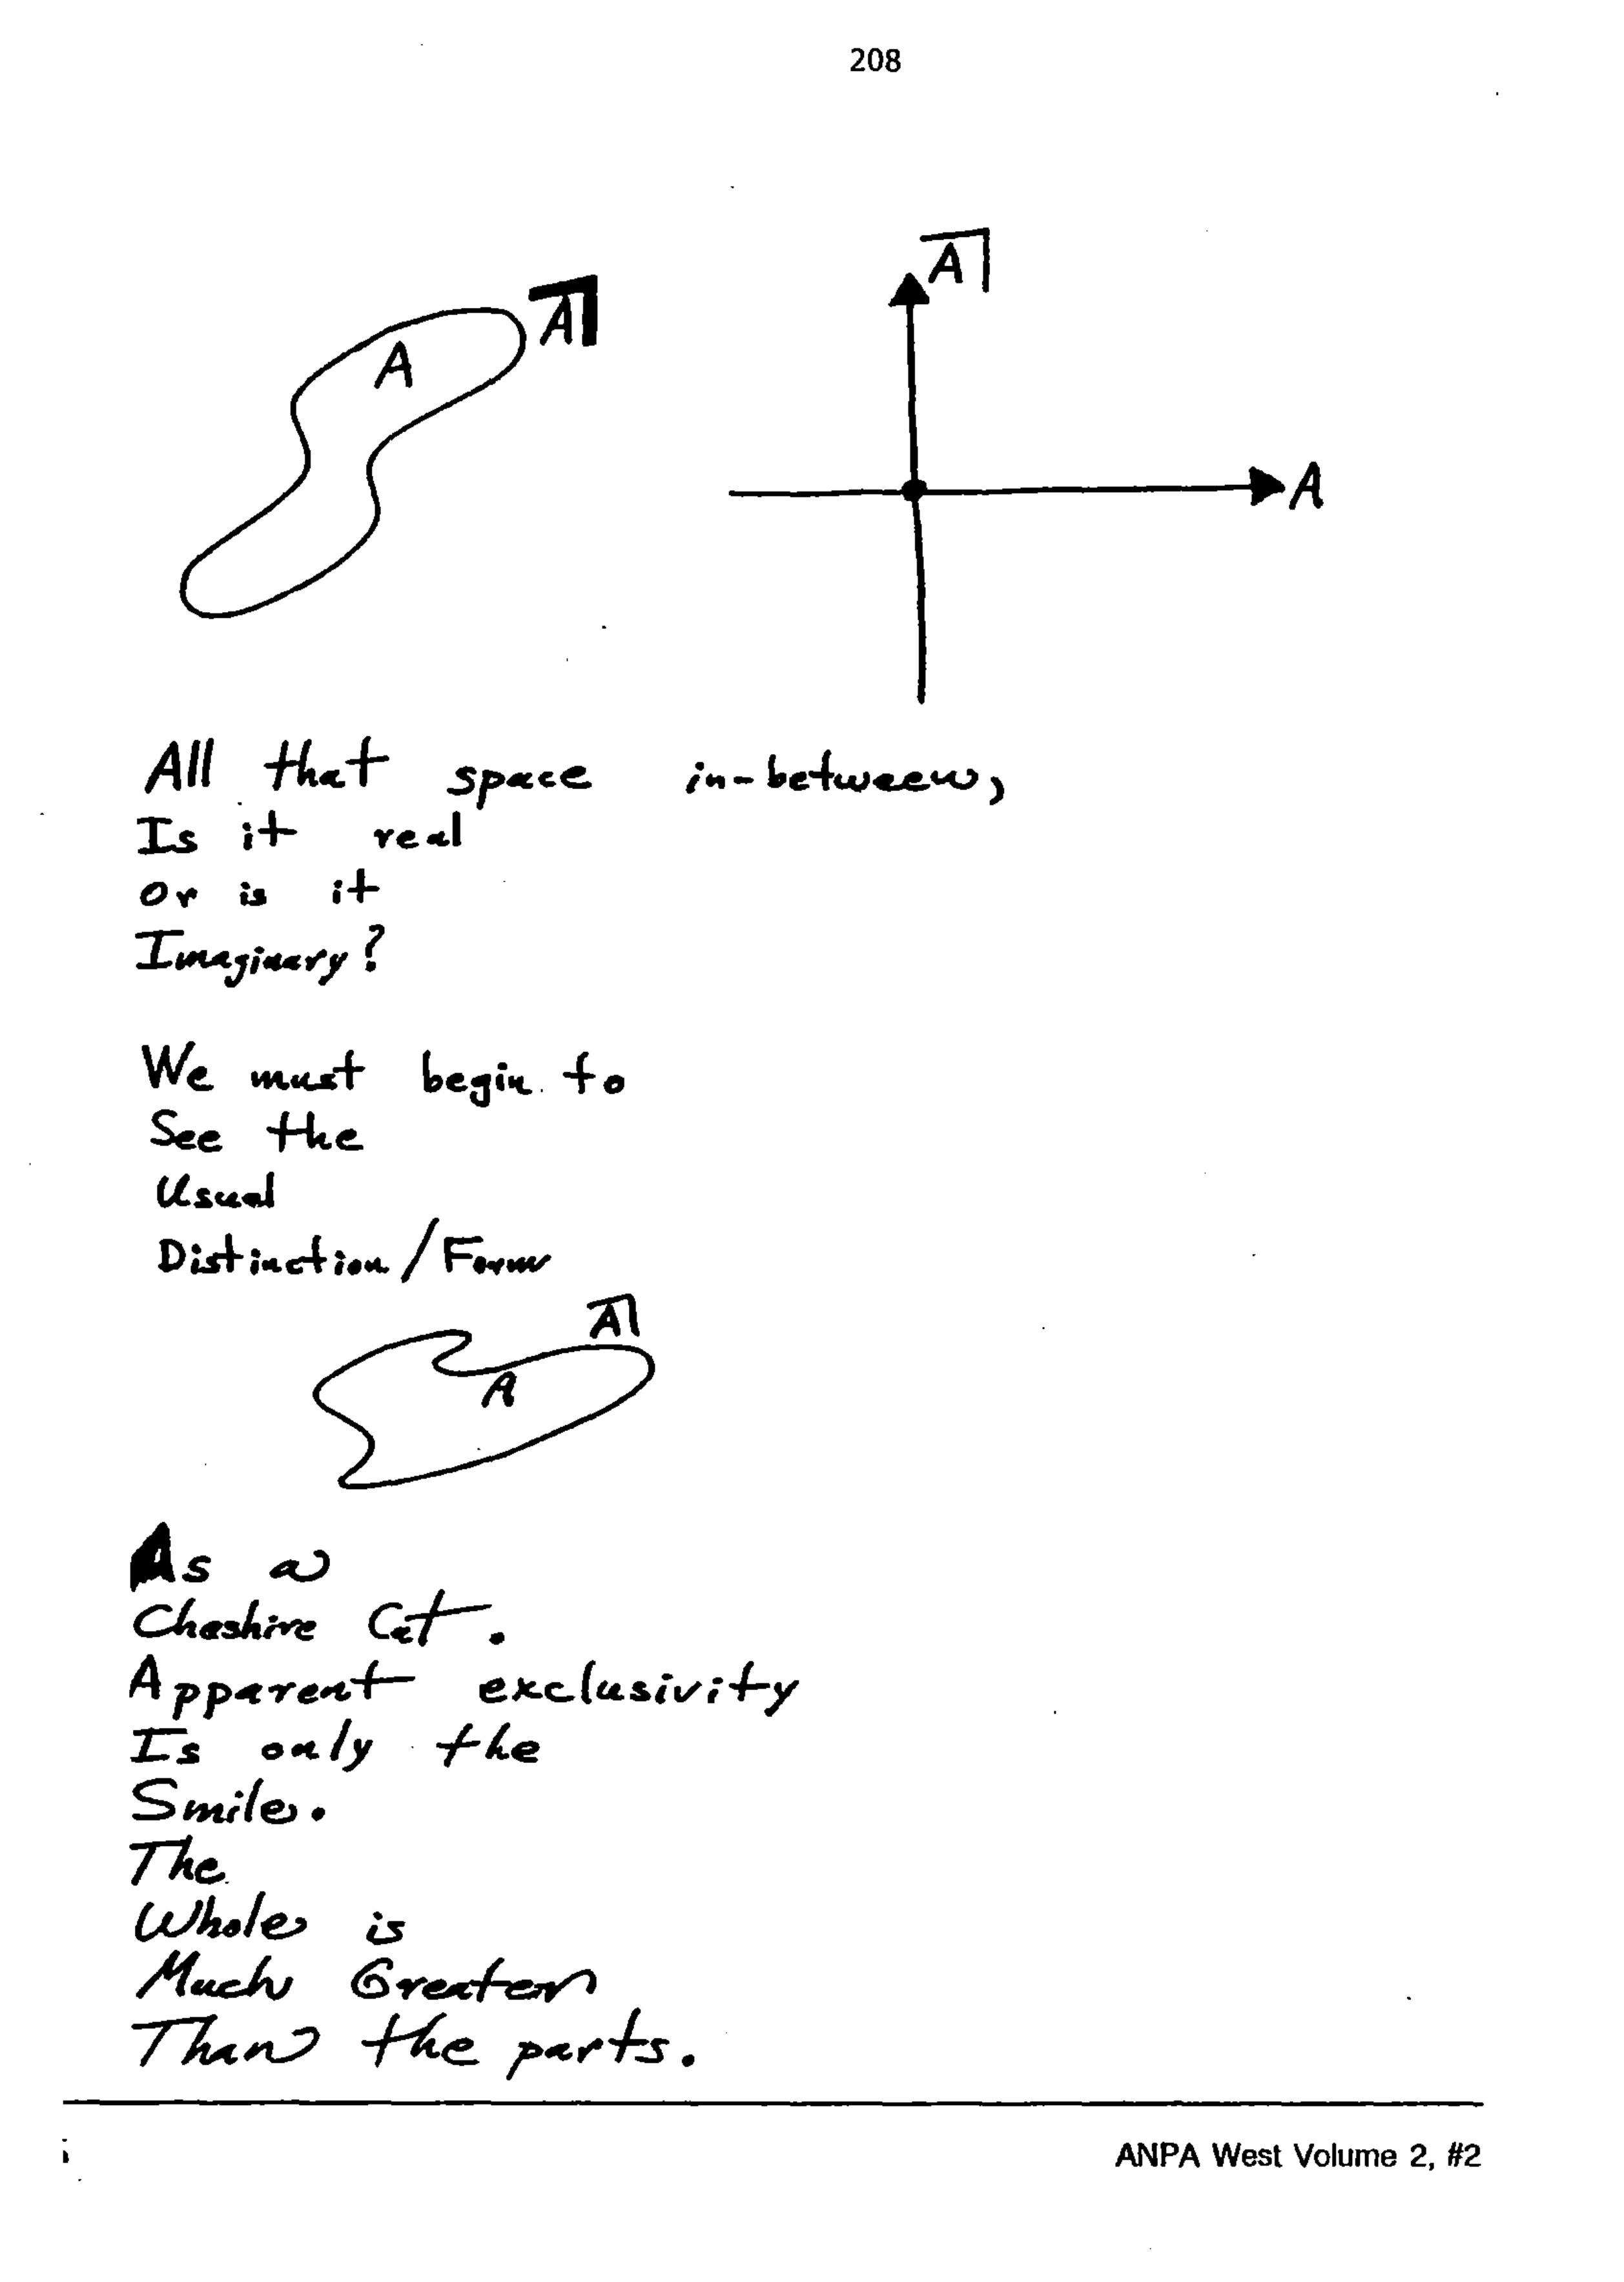 208
A
A
A
A
All that space in-between,
Is it real
Or is it
Imaginary?
We must begin to
See the
Usual
Distinction/Form
A
A
As a
Cheshire Cat.
Apparent exclusivity
Is only the
Smile.
The
Whole is
Much Greater
Than the parts.
ANPA West Volume 2, #2